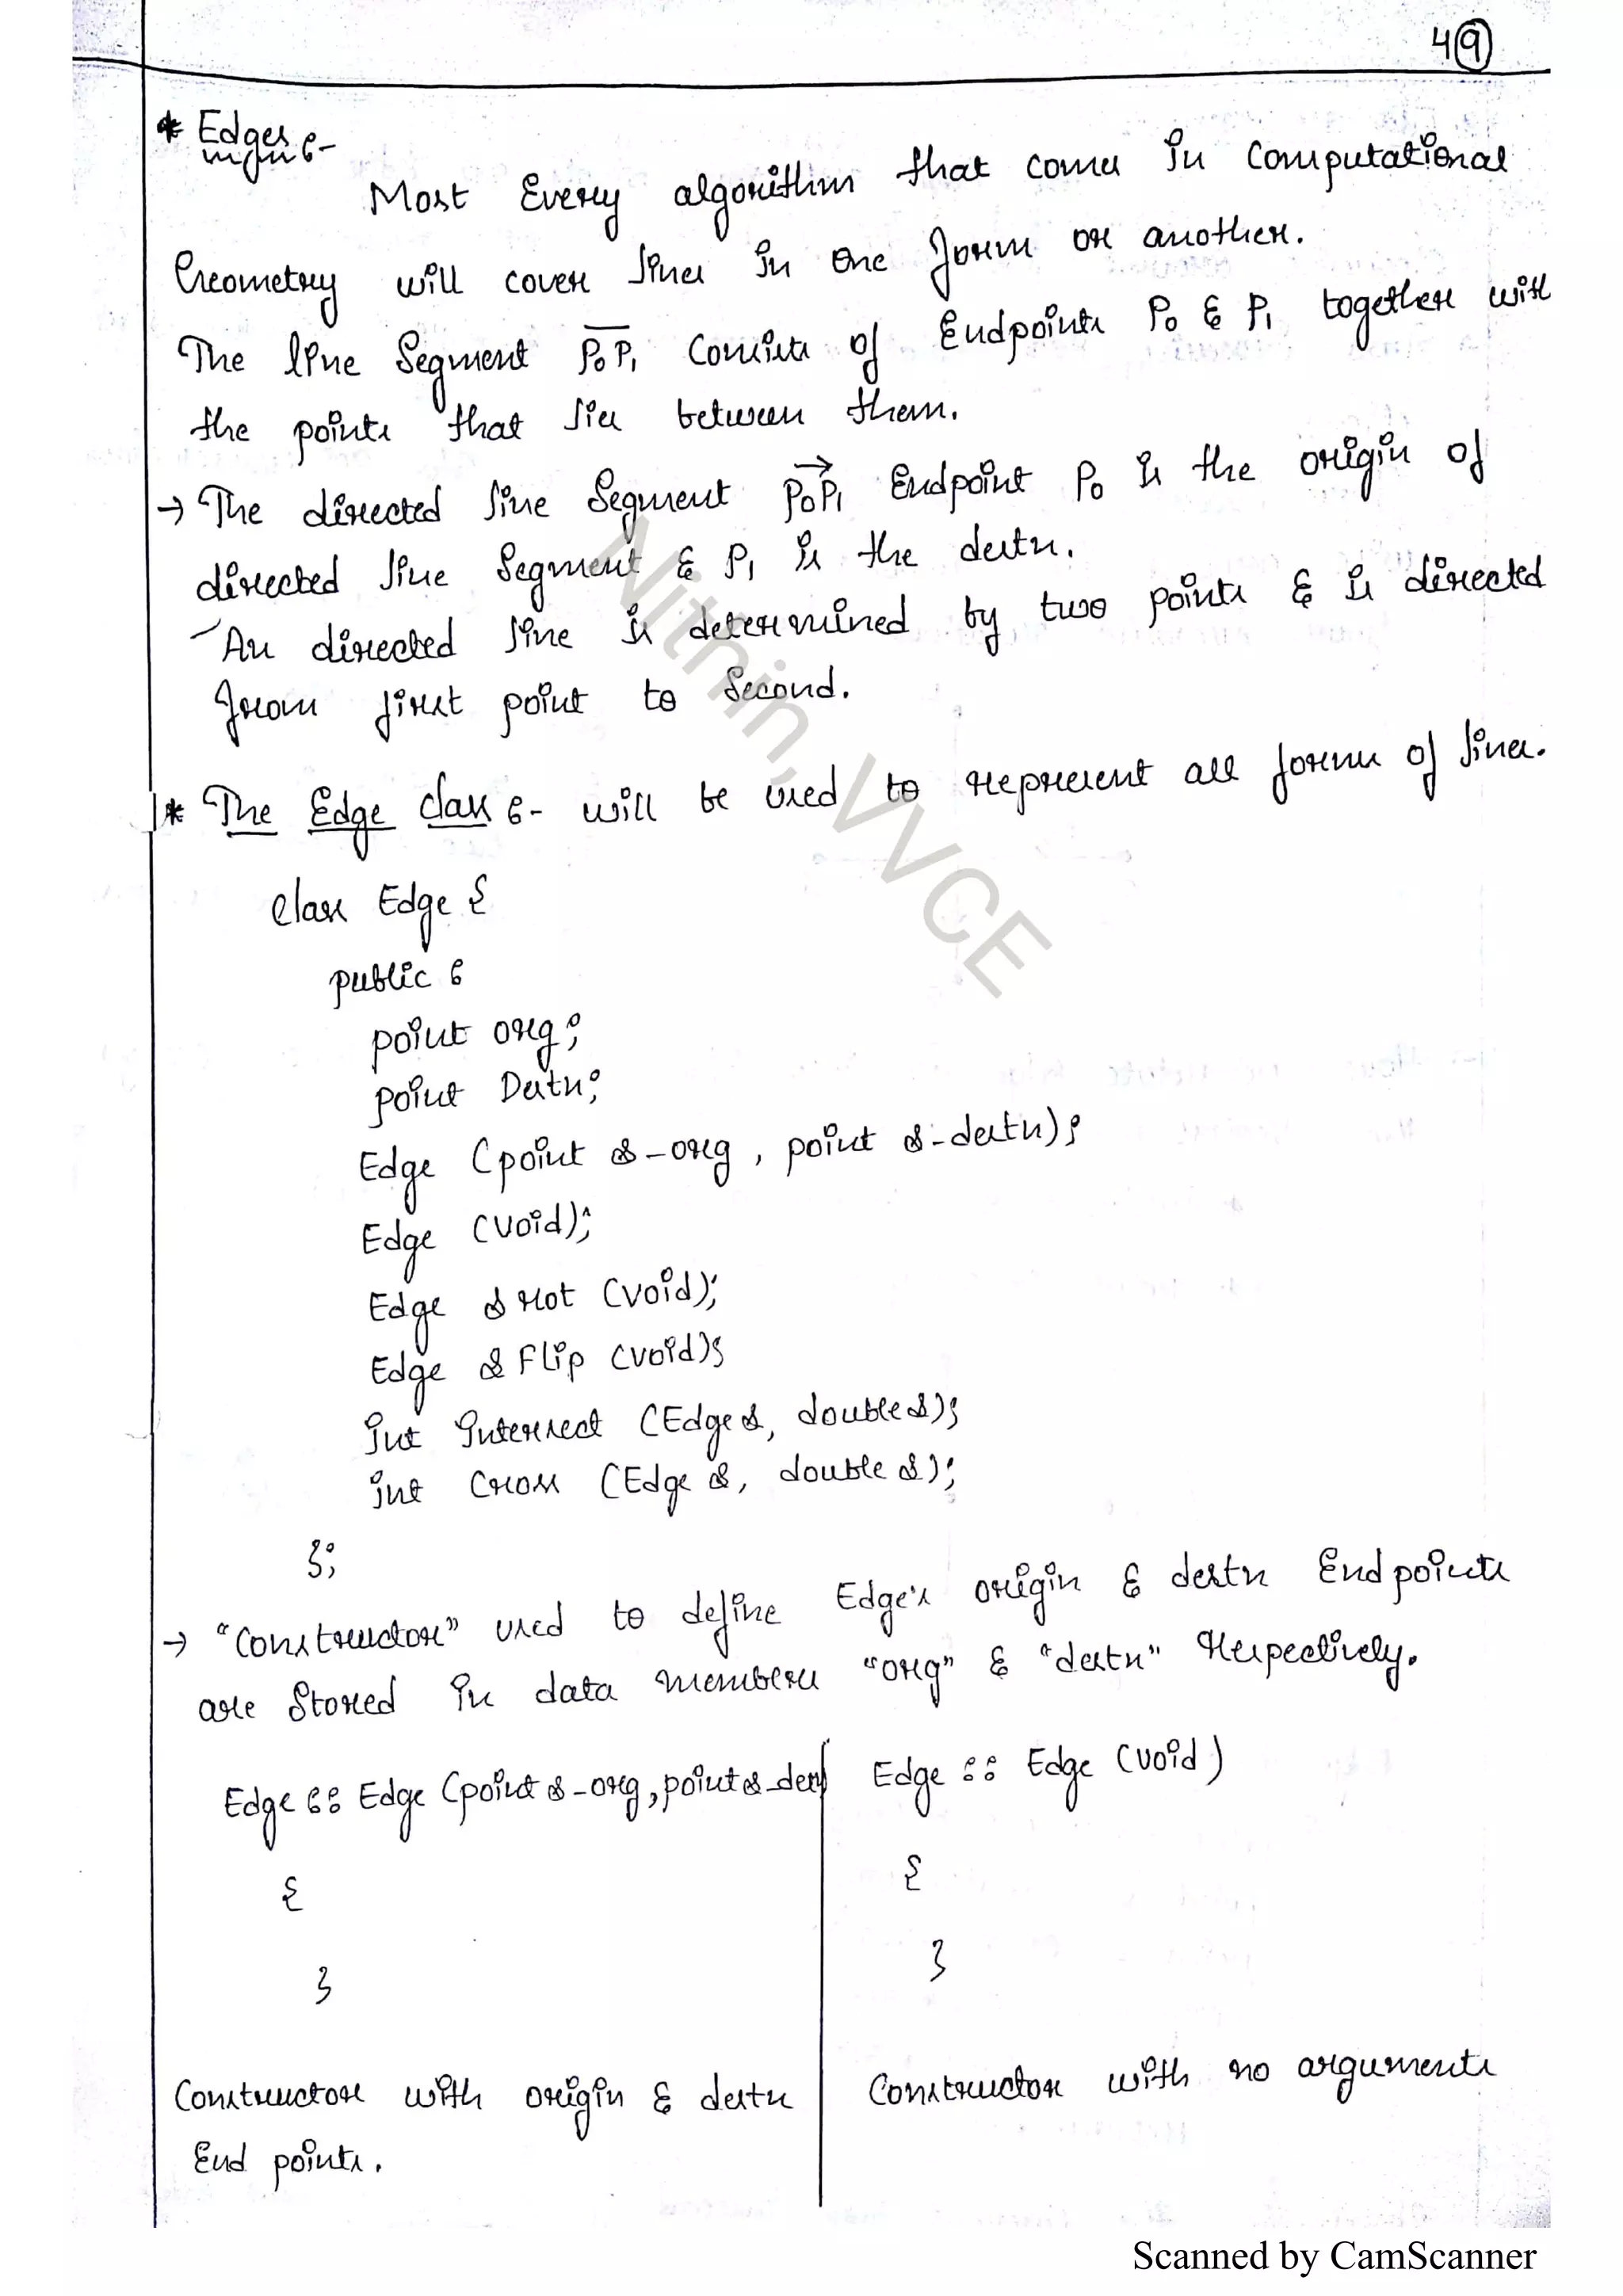 49
* Edges :-
Most Every algorithm that comes in Computational
Geometry will cover lines in one form or another.
The line Segment P0P1 Consists of Endpoints P0 & P1 together with
the points that lies between them.
→ The directed line Segment P0P1 Endpoint P0 is the origin of
directed line Segment & P1 is the destn.
An directed line is determined by two points & is directed
from first point to Second.
* The Edge class :- will be used to represent all forms of lines.
class Edge {
public :
point org;
point Destn;
Edge (point &-org, point &-destn);
Edge (void);
Edge & rot (void);
Edge & Flip (void);
int intersect (Edge &, double &);
int Cross (Edge &, double &);
};
→ "Constructor" used to define Edge's origin & destn Endpoints
are Stored in data members "org" & "destn" respectively.
Edge :: Edge (point & -org, point & -des)
{
}
Constructor with origin & destn
End points.
Edge :: Edge (void)
{
}
Constructor with no arguments
Nithin, VVCE
Scanned by CamScanner